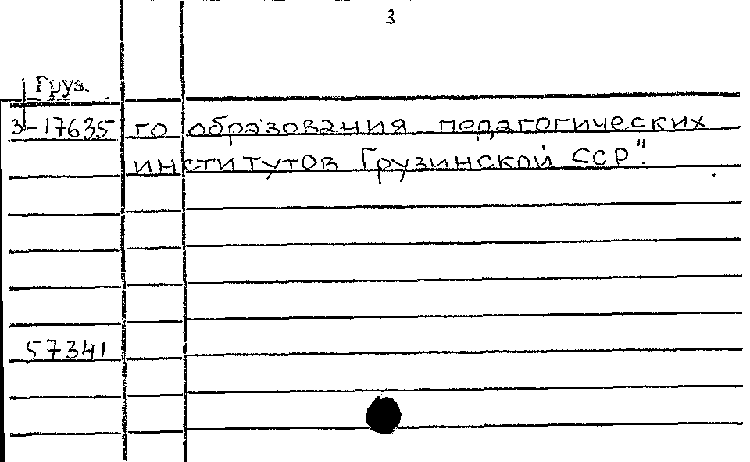 3
Груз.
3-17635 го образования педагогических
институтов Грузинской ССР".
57341